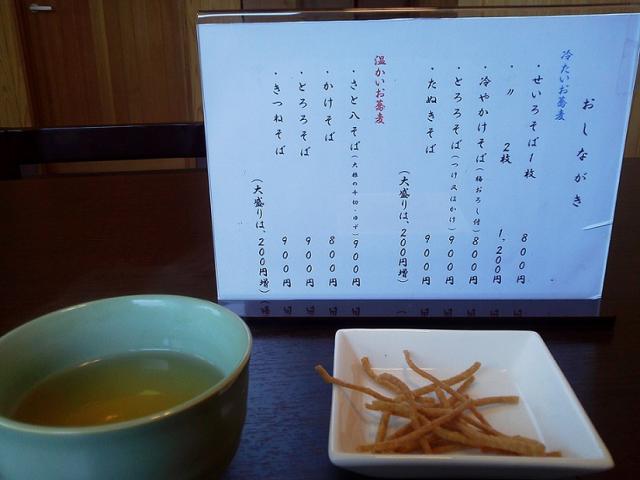 おしながき
冷たいお蕎麦
・せいろそば1枚 800円
・〃 2枚 1,200円
・冷やかけそば(梅おろし付) 800円
・とろろそば(つけ又はかけ) 900円
・たぬきそば 900円
(大盛りは、200円増)
温かいお蕎麦
・さと八そば(大根の千切・ゆず) 900円
・かけそば 800円
・とろろそば 900円
・きつねそば 900円
(大盛りは、200円増)